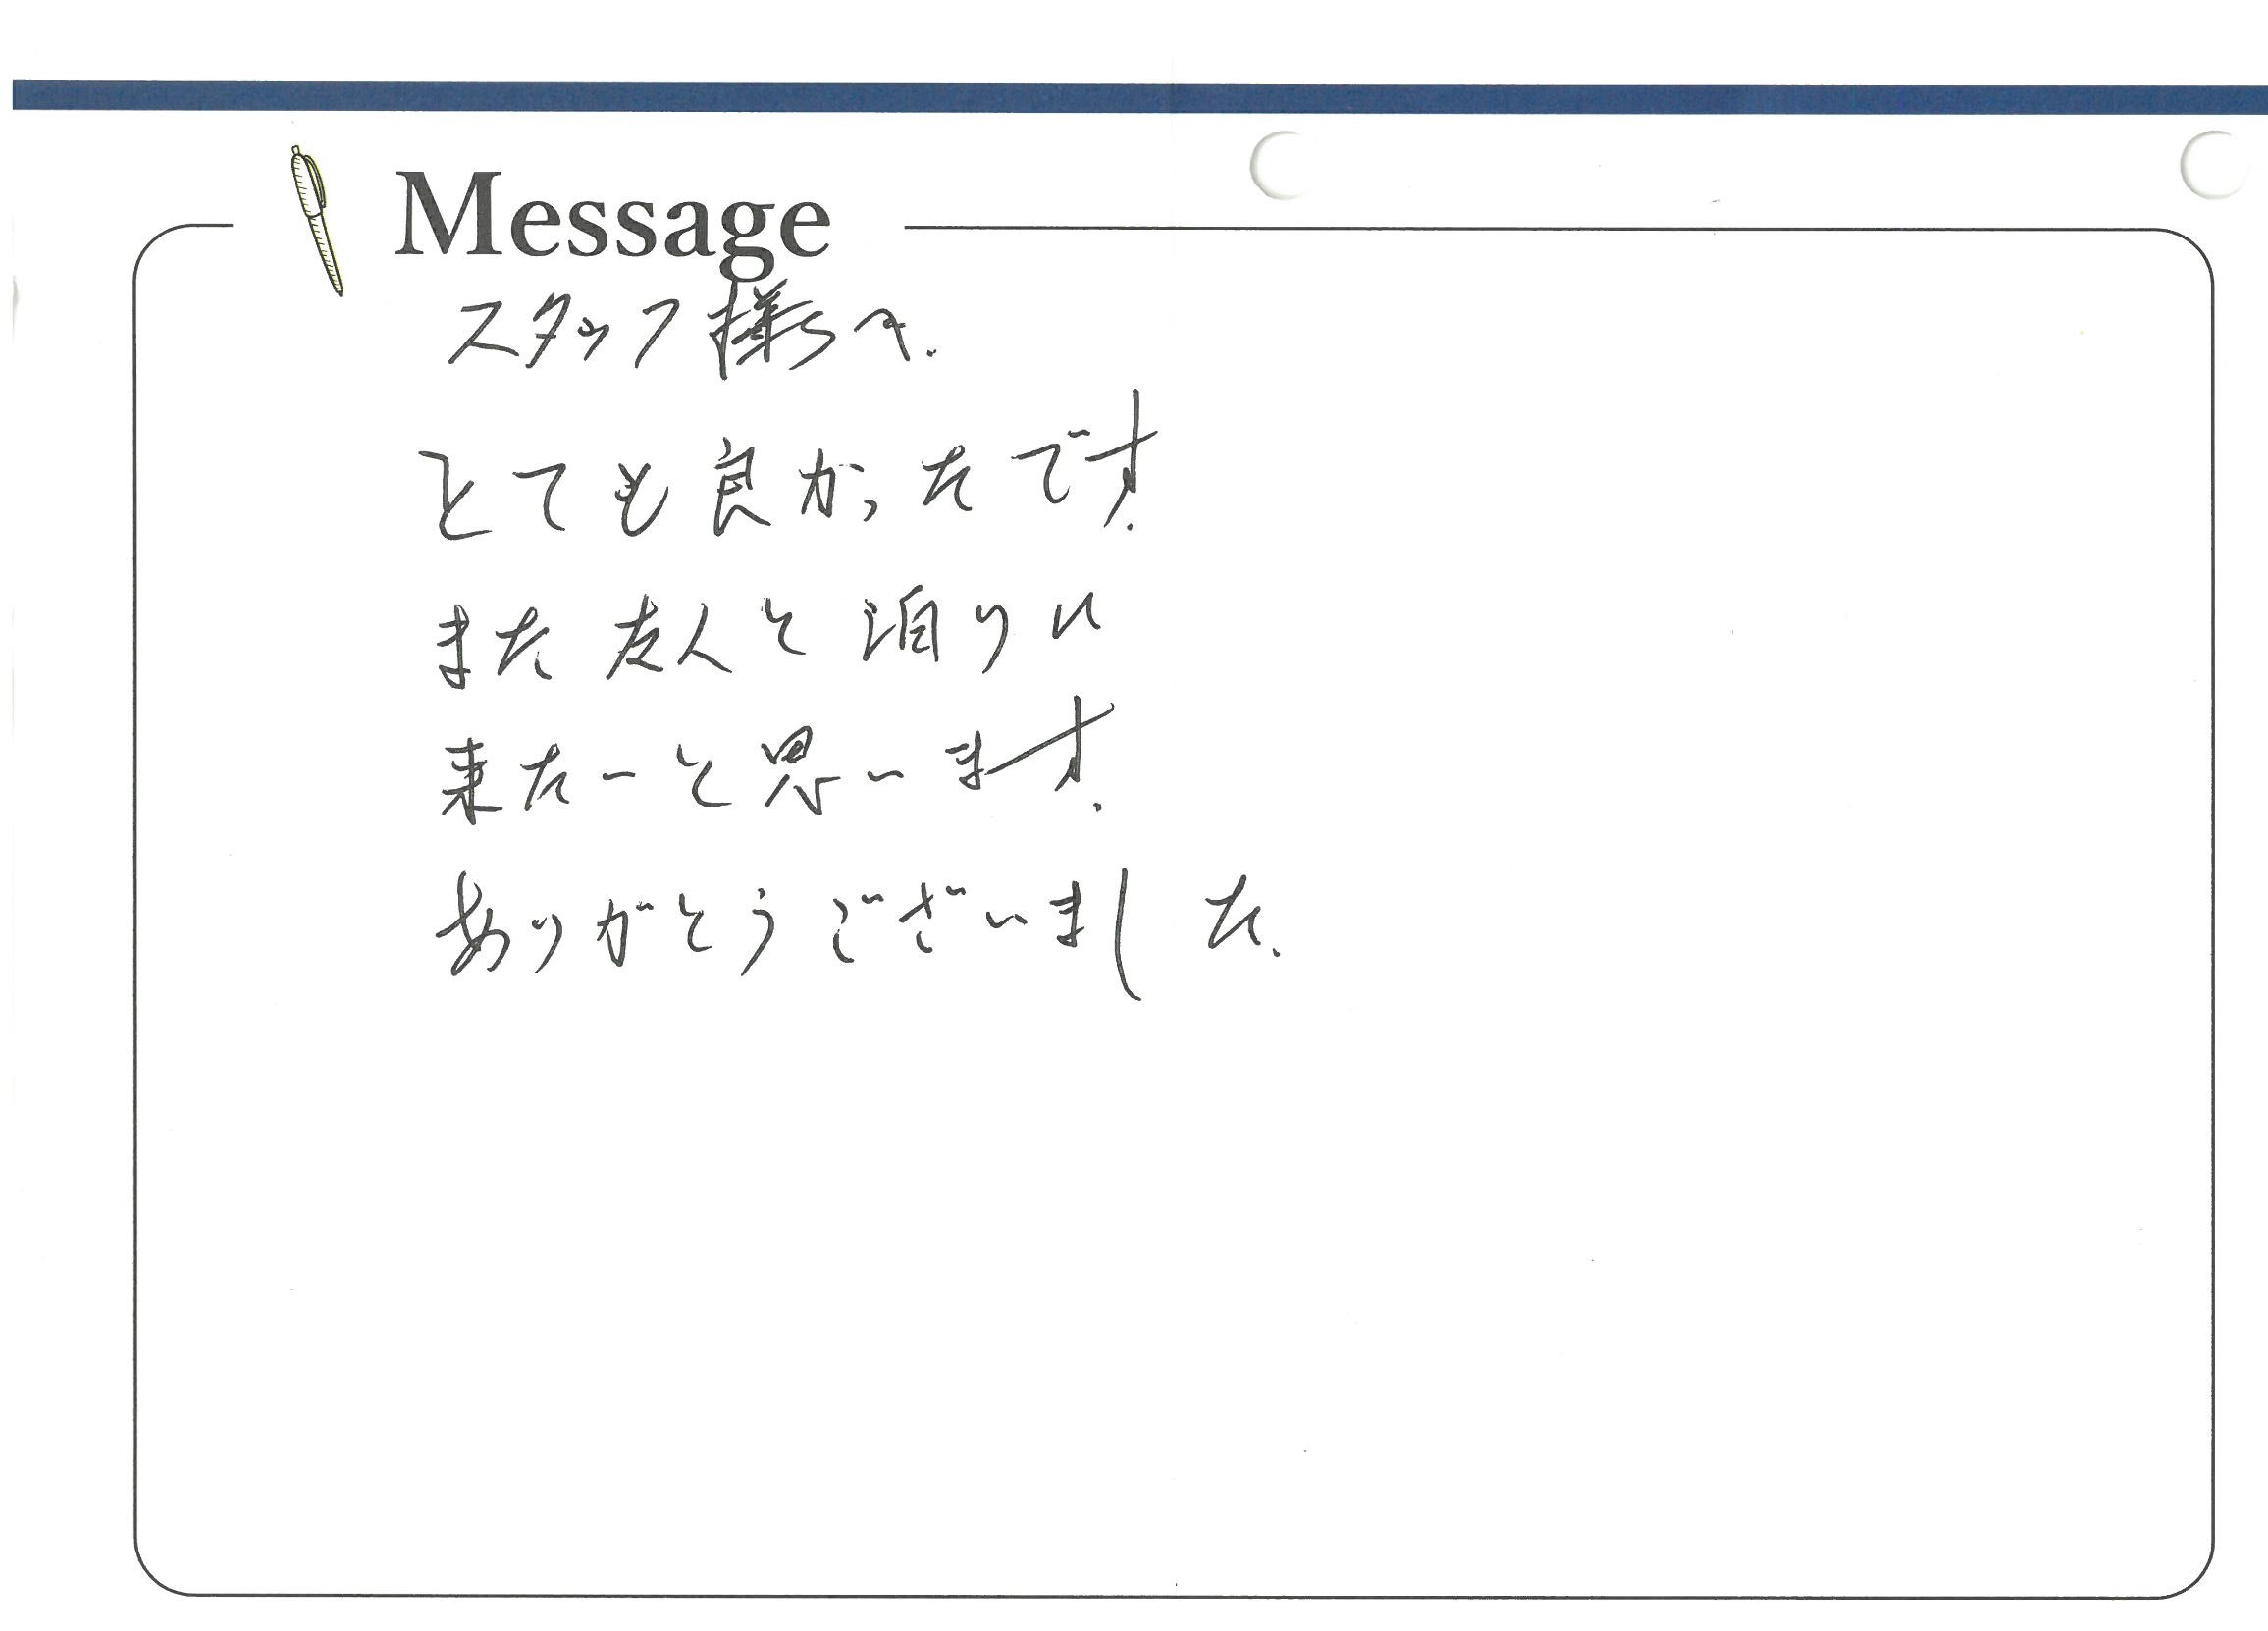 Message
スタッフ様らへ.
とても良かったです.
また友人と泊りに
来たいと思います.
ありがとうございました.